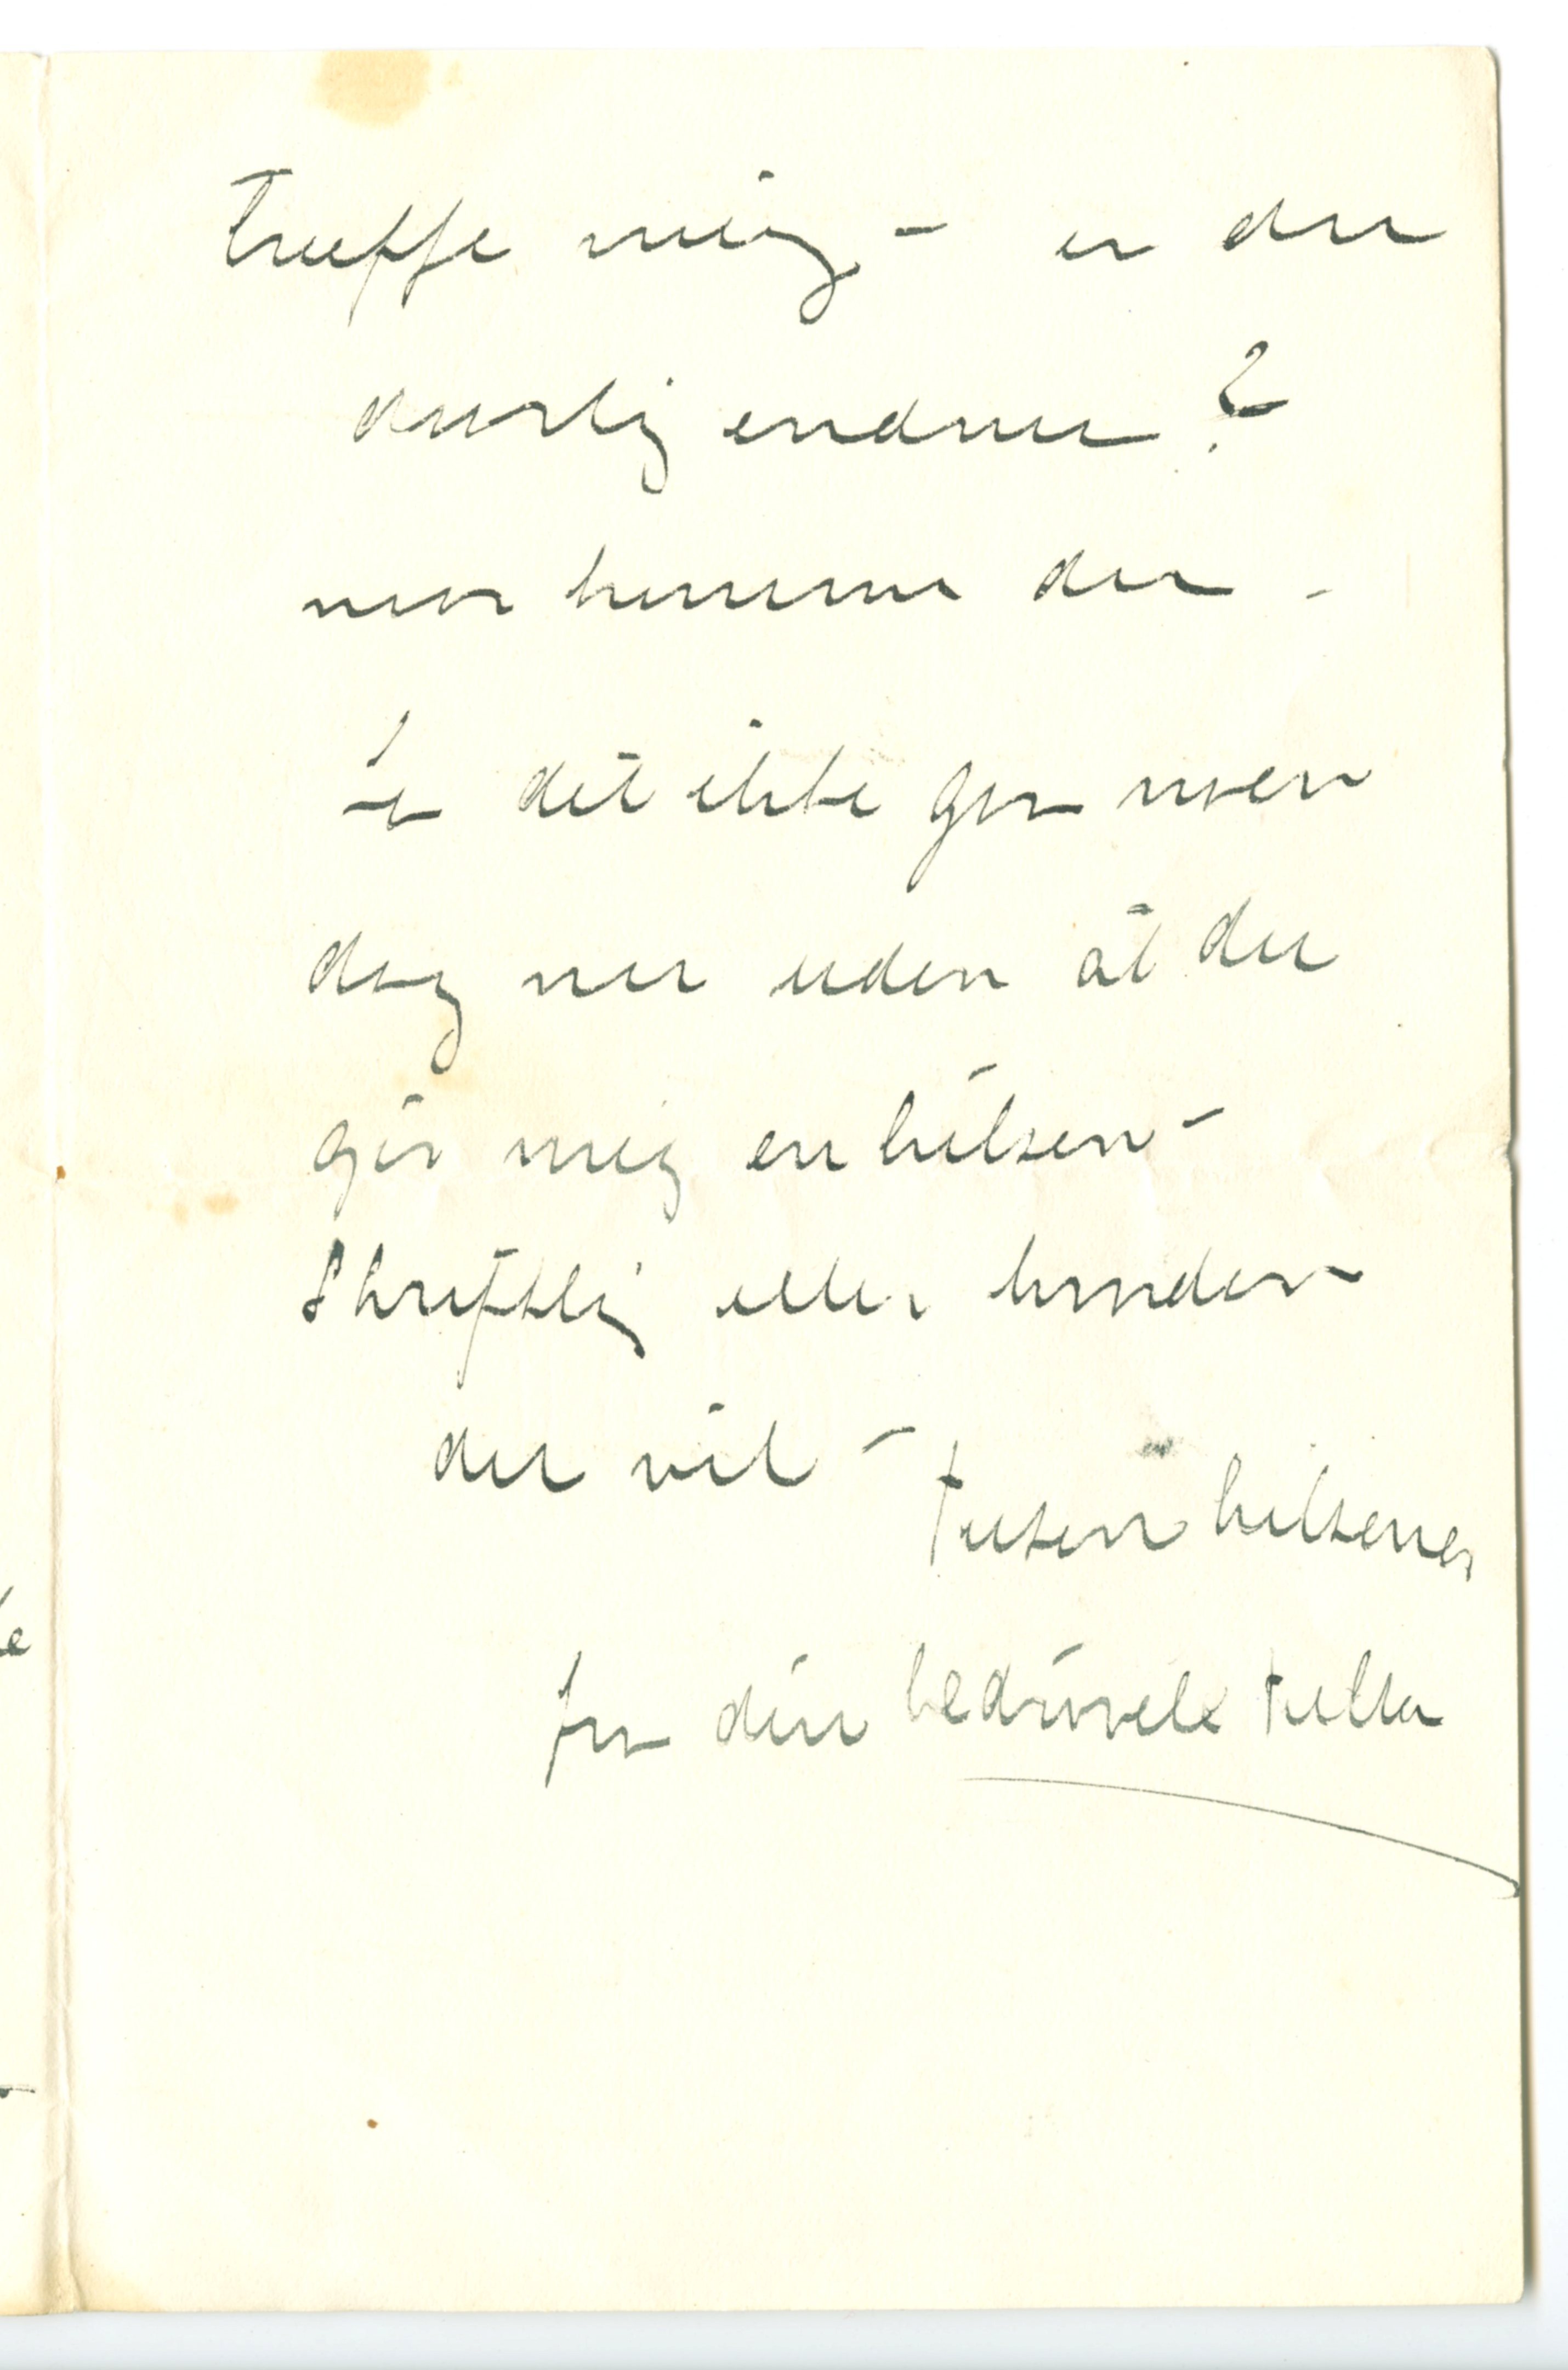 træffe mig – er du
daarlig endnu?
naar kommer du –
La det ikke gaa noen
dag nu uden at du
gir mig en hilsen –
Skriftlig eller hvordan
du vil –
tusen hilsener
fra din bedrøvete tulla